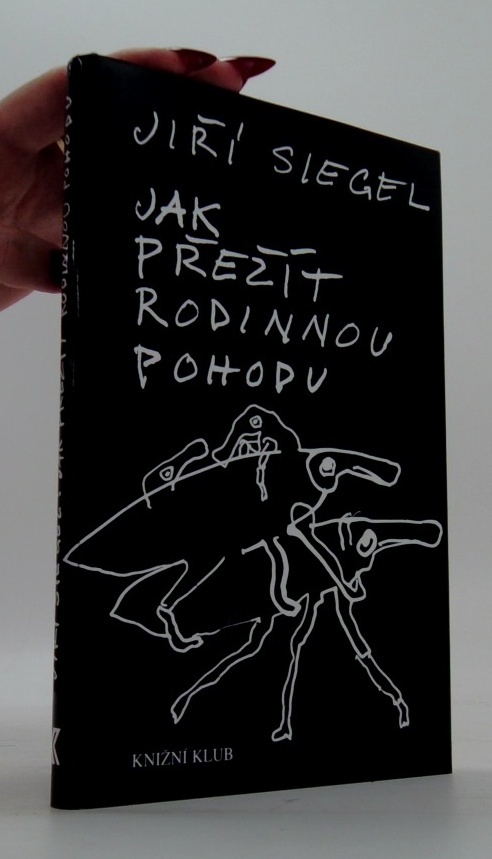 JIŘÍ SIEGEL
JAK
PŘEŽÍT
RODINNOU
POHODU
KNIŽNÍ KLUB
JIŘÍ SIEGEL: JAK PŘEŽÍT RODINNOU POHODU